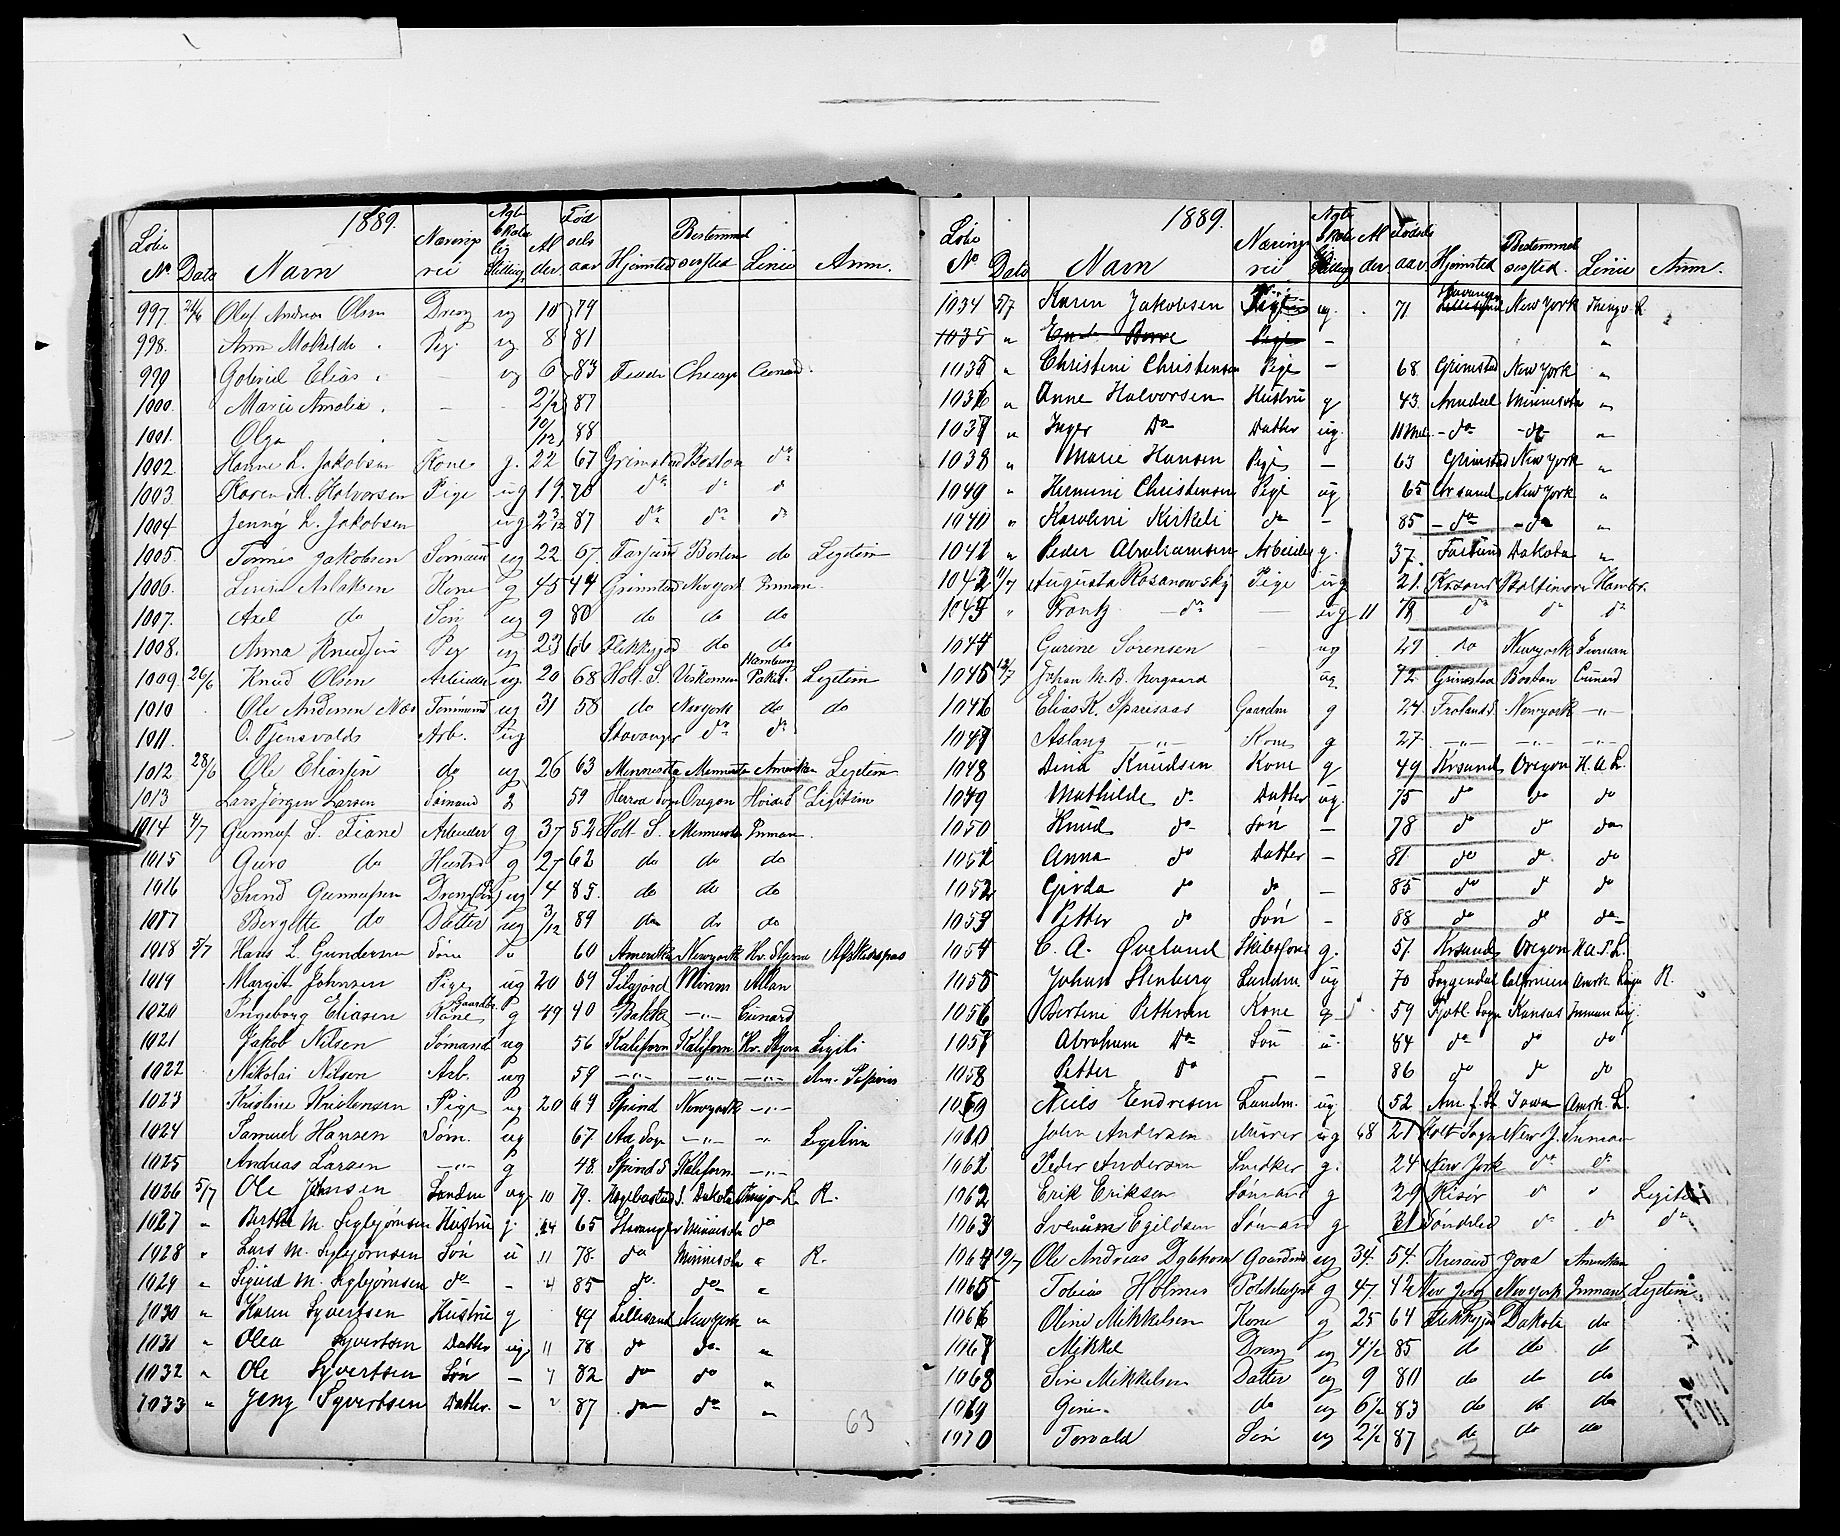 1889.
Løbe No Dato Navn Nærings vei Ægte Skabe lig Stilling Al der Fød sels aar Hjemsted Bestemmel sessted Linie Anm.
997. 21/6 Oluf Andreas Olsen Dreng ug 10 79
998. Ann Mathilde Pige ug 8 81
999 Gabriel Elias ug 6 83 Chicago Cunard
1000. Marie Amalia 2 1/2 87
1001. Olga 10/12 88
1002 Hanne L. Jakobsen Kone g. 22 67 Grimstad Boston do
1003 Karen M. Halvorsen Pige ug 19 70 do do do
1004 Jenny L. Jakobsen ug 2 3/12 87 do do do
1005. Tomas Jakobsen Sømand ug 22 67. Farsund Boston do Legitim
1006. Aslaksen Kone g 45 44 Grimstad Newyork Inman
1007. Axel do Søn ug 9 80 do do do
1008. Anna Knudsen Pige ug 23 66 Flekkefjord do do
1009. 26/6 Knud Olsen Arbeider ug. 20 68 Holt S. Viskonsin Hamburg Paket. Legitim
1010 Ole Andersen Næs Tømmermd ug 31 58 do Newyork do do
1011. O. Tjensvold Arb. ug Stavanger do do
1012 28/6 Ole Eliassen do ug 26 63 Minnesota Minnesota Amerikan Legitim
1013 Lars Jørgen Larsen Sømand g 59 Herred Sogn Oregon Hvide S Legitim
1014 1/7 Gunnuf S. Fiane Arbeider g 37 52 Holt S. Minnesota Inman.
1015 Guro do Hustru g 27 62 do do do
1016 Svend Gunnufsen Dreng ug 4 85. do do do
1017 Bergitte do Datter ug 3/12 89 do do do
1018 5/7 Hans L. Gundersen 60 Amerika Newyork Hv. Stjerne Afskedspas
1019 Margit Johnsen Pige ug 20 69 Silgjord Minns Allan
1020 Ingeborg Eliasen Gaardbr Kone g 49 40 Bakke -"- Cunard
1021 Jakob Nilsen Sømand ug 56 Kaliforn Kaliforn Hv. Stjern Legiti
1022 Nikolai Nilsen Arb. ug 59 -"- -"- -"- Am. Papirer
1023 Kristine Kristensen Pige ug 20 69 Spind Newyork -"-
1024 Samuel Hansen Søm. ug 67. Aa. Sogn -"- " Legitim
1025 Andreas Larsen -"- g 48. Spind S Kaliforn. -"-
1026 5/7 Ole Jensen Landm ug. 10 79. Høgebostad S. Dakota Thingv. L R.
1027 " Birthe M. Sigbjørnsen Hustru g. 24 65 Stavanger Minnesota do
1028 " Lars M. Sigbjørnsen Søn u 11 78. do Minnesota " R.
1029 " Sigurd M. Sigbjørnsen do - 4 85 do. do "
1030 " Karen Syvertsen Hustru g 49 Lillesand Newyork "
1031 " Olea Syvertsen Datter ug. 11 78 do do "
1032 " Ole Syvertsen Søn - 7 82 do do "
1033 " Jeny Syvertsen Datter. - 2 87 do do "
63
1889.
Løbe No Dato Navn Nærings vei Ægte Skabe lig Stilling Al der Fødsels aar Hjemsted Bestemmel sessted. Linie Anm.
1034 5/7 Karen Jakobsen Pige ug. 71 Stavanger New York Thingv. L.
1035 " Borre Pige - "
1035 " Christine Christensen Pige - 68 Grimstad New York "
1036 " Anne Halvorsen Hustru g 43. Arendal Minnesota "
1037 " Inger Do Datter ug. 11 Md. -do- -do- "
1038 " Marie Hansen Pige - 63 Grimstad New York "
1049 " Hermine Christensen Pige ug 65 Krsand New York "
1040 " Karoline Kirkeli do - 85 -do- -do "
1041 " Peder Abrahamsen Arbeider g. 37. Farsund Dakota "
1042 11/7 Augusta Rosanowsky Pige ug 21. Krsand Baltimore Hambr.
1043 " Frantz -do- ug 11 79 do do do
1044 Gurine Sørensen - ug 27 do Newyork Inman
1045 12/7 Johan M. B. Nergaard ug 72. Grimstad Boston Cunard
1046 Elias K. Sparesaas Gaardm g 24. Froland S Newyork -"-
1047 Aslaug -"- Kone g 27. -"- -"- -"-
1048 Dina Knudsen Kone g 49 Krsand Oregon H. A. L.
1049 Mathilde do Datter ug. 75 do do do
1050 Knud do Søn - 78 do do do
1051 Anna do Datter - 81 do do. do
1052 Gerda do do - 85 do do do
1053 Petter do Søn - 88 do do do
1054 C. A. Øveland Skibsfører g. 51. Krsand Oregon H. A. P. L.
1055 Johan Stenberg Landm. ug 70 Soggendal Californien Amrk. Linje R.
1056 Bertine Pettersen Kone g 59 Fjotl. Sogn Kansas Inman Linj.
1057 Abraham Do Søn u. 84 do do do
1058 Petter do 86 do do do
1059 Niels Endresen Landm. ug 52 Am. f. St Iowa Amrk. L.
1060 John Andersen Murer ug 68 21 Holt Sogn New J. Inman
1061 Peder Andersen Snedker g. 24 New York do do
1062 Erik Eriksen Sømand g 29 Risør do " Legitim
1063 Egildsen Sømand g 31 Søndeled do do do
1064 12/7 Ole Andreas Gaardm ug 34. 54. Krsand Jova Amerikan
1065 Tobias Holmes Politibetjent g 47 42 New Jersy Newyork Inman Legitim
1066 Oline Mikkelsen Kone g 25 64 Flekkefjord Dakota do
1067 Mikkel Dreng ug 4 1/2 85 do do do
1068 Sine Mikkelsen Datter ug 9 80 do do do
1069 Gine do ug 6 1/2 83 do do do
1070 Torvald Søn ug 2 1/2 87 do do do
52